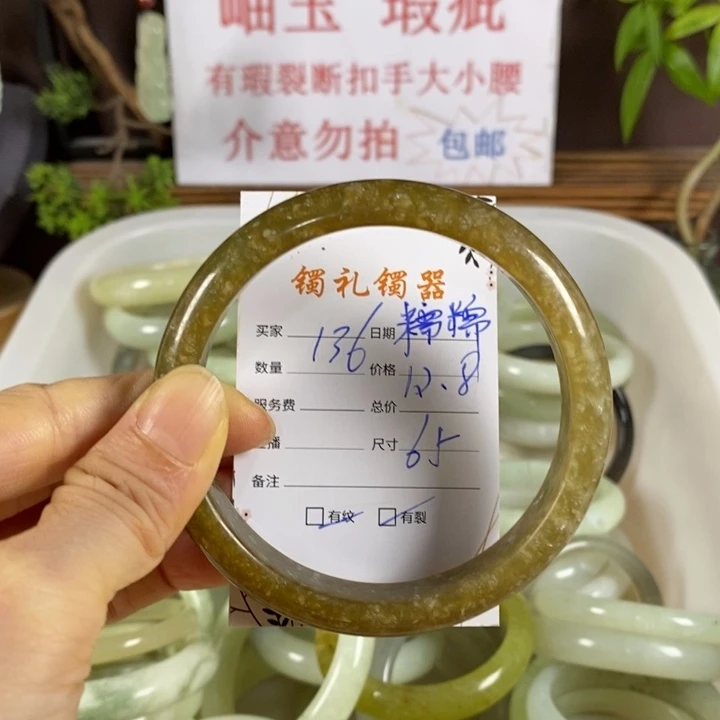 岫玉 瑕疵
有瑕裂断扣手大小腰
介意勿拍 包邮
镯礼镯器
买家 136 日期 糯糯
数量 价格 12.8
服务费 总价
播 尺寸 65
备注
有纹 有裂